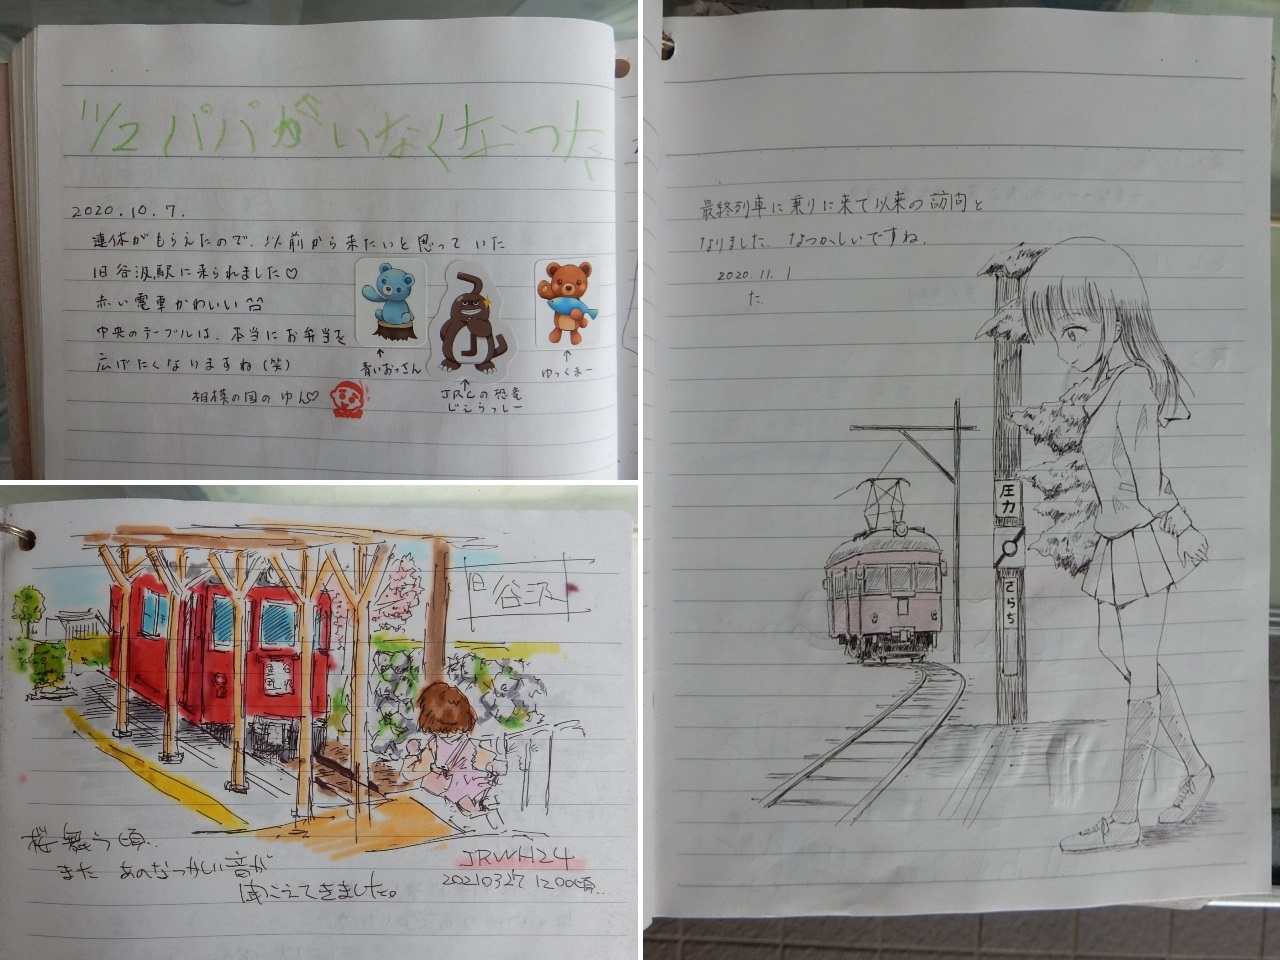 11/2 パパがいなくなった
2020.10.7.
連休がもらえたので、以前から来たいと思っていた
旧谷汲駅に来られました♡
赤い電車かわいい
中央のテーブルは、本当にお弁当を
広げたくなりますね(笑)
相模の国のゆん♡
↑
青いおっさん
↑
JRCの恐竜
じぇらっしー
↑
ゆっくまー
旧谷汲
桜舞う頃..
また あのなつかしい音が
聞こえてきました。
JRWH24
20210327 1200頃..
最終列車に乗りに来て以来の訪問と
なりました。なつかしいですね。
2020.11.1
た.
圧力
さらち